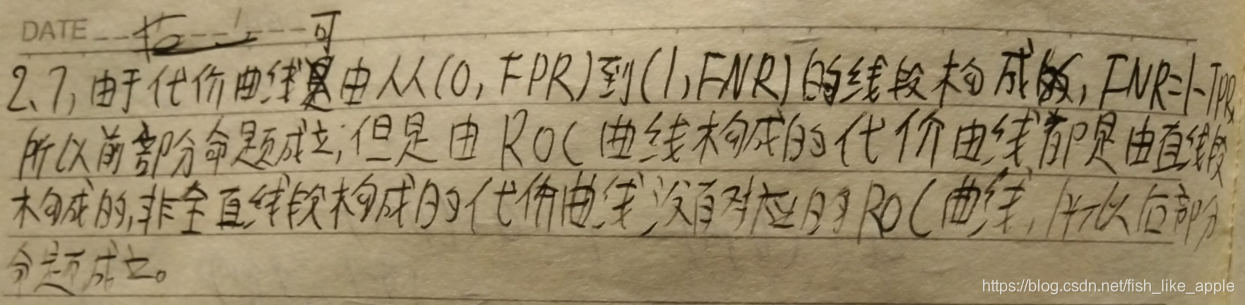 DATE
可
2.7,由于代价曲线是由从(0,FPR)到(1,FNR)的线段构成的,FNR=1-TPR,
所以前部分命题成立;但是由ROC曲线构成的代价曲线都是由直线段
构成的,非全直线段构成的代价曲线没有对应的ROC曲线,所以后部分
命题成立。
https://blog.csdn.net/fish_like_apple